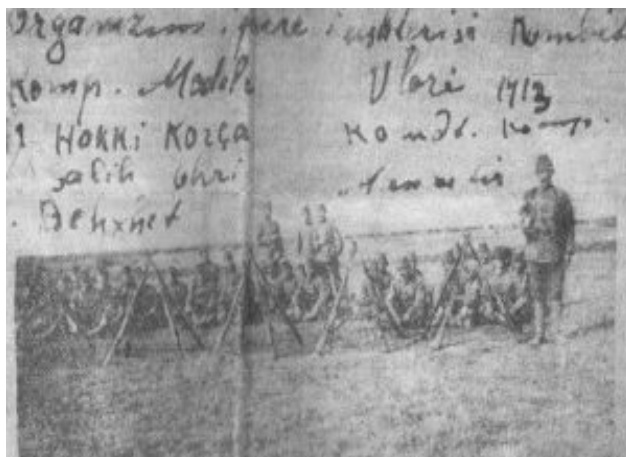 Organizimi i pare i ushterisë Kombit
Komp. Modele Vlorë 1913
HAKKI KORÇA KOMDt. Komp.
salih ohri
Behxhet